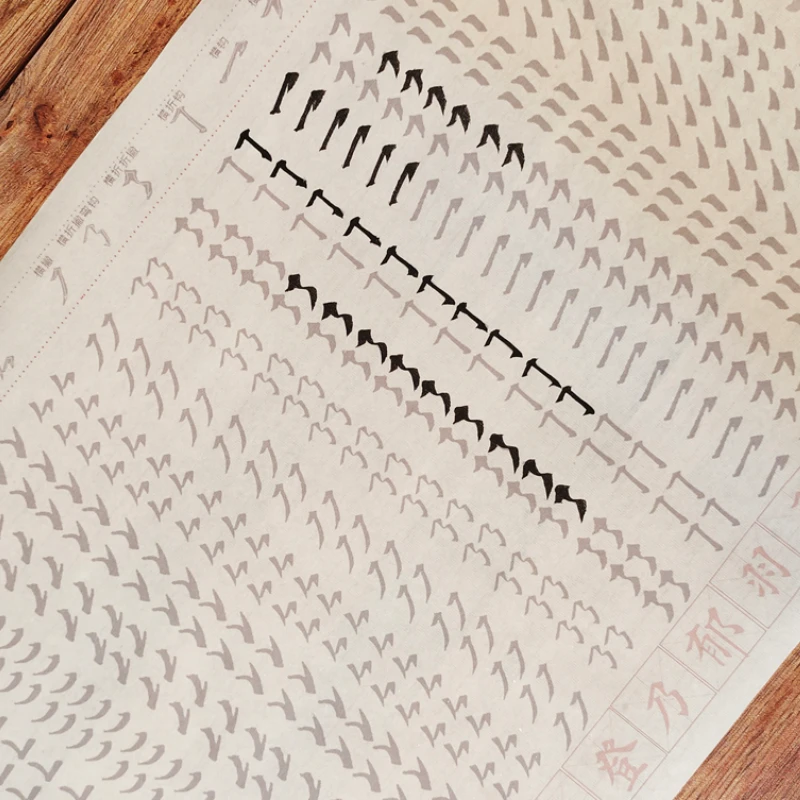 横撇
横折撇弯钩
横折折撇
横折钩
横钩
登
乃
郁
羽